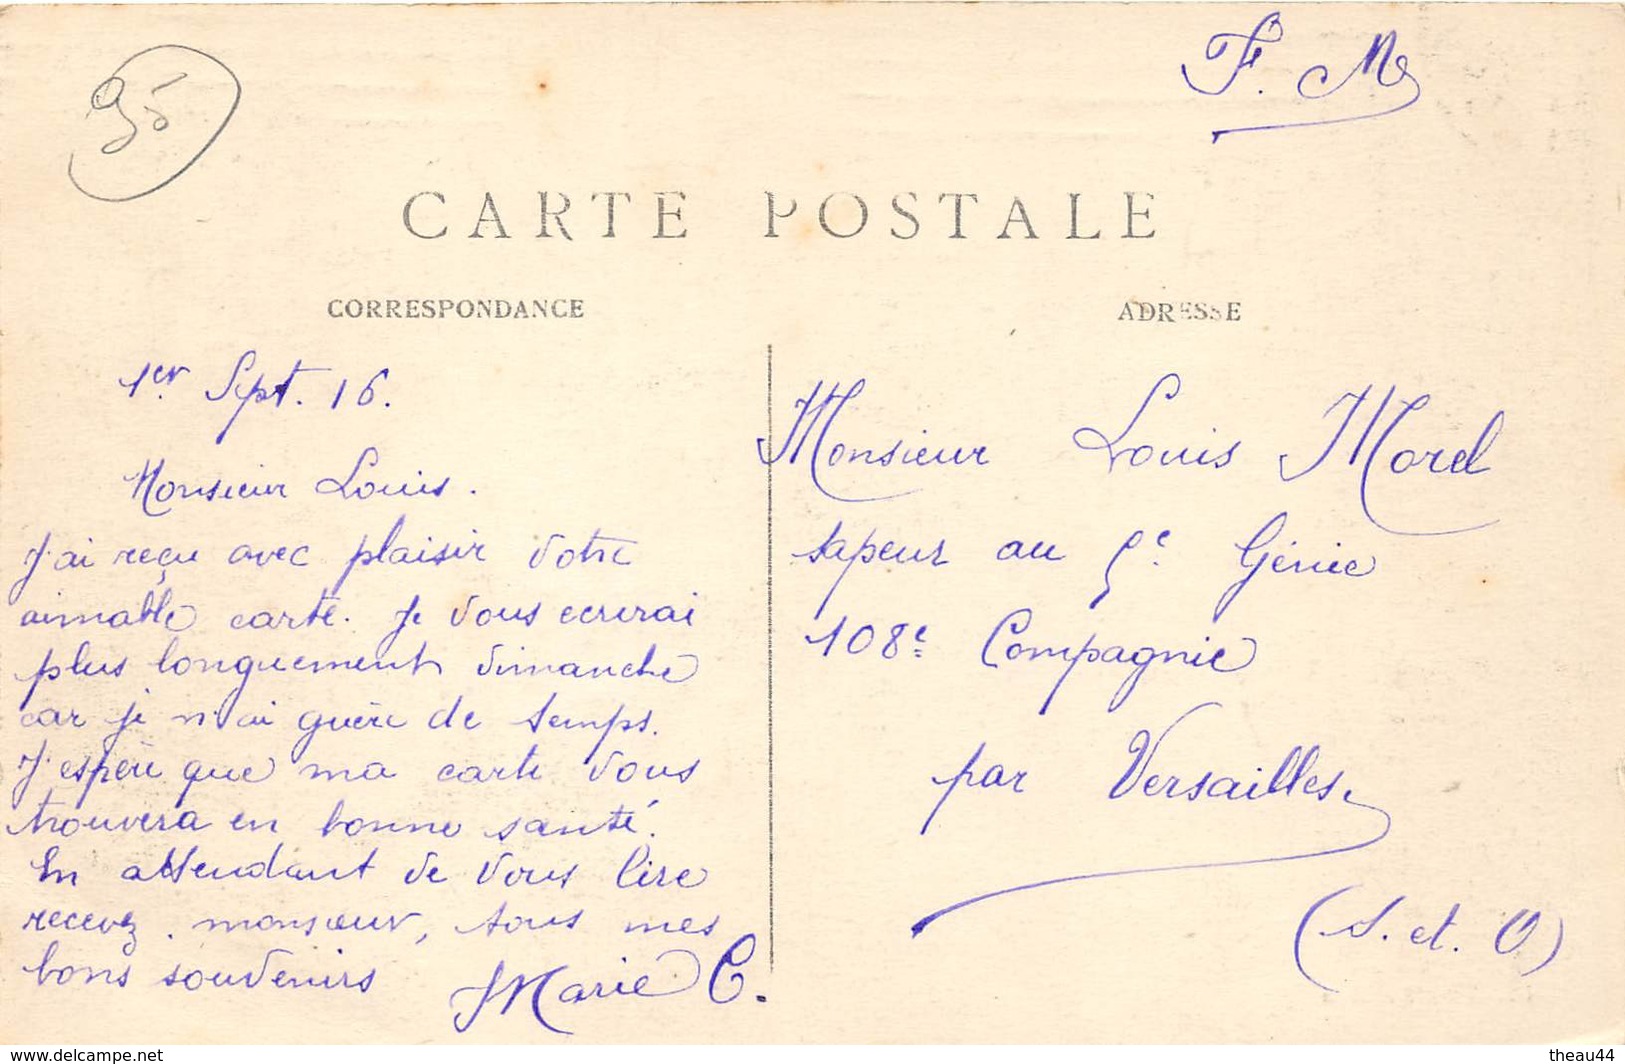 95
F. M
CARTE POSTALE
CORRESPONDANCE
1er Sept. 16.
Monsieur Louis.
J'ai reçu avec plaisir votre
aimable carte. Je vous ecrirai
plus longuement dimanche
car je n'ai guère de temps.
J'espère que ma carte vous
trouvera en bonne santé.
En attendant de vous lire
recevez, monsieur, tous mes
bons souvenirs Marie C.
ADRESSE
Monsieur Louis Morel
sapeur au 5e Génie
108e Compagnie
par Versailles
(S. et. O)
www.delcampe.net
theau44